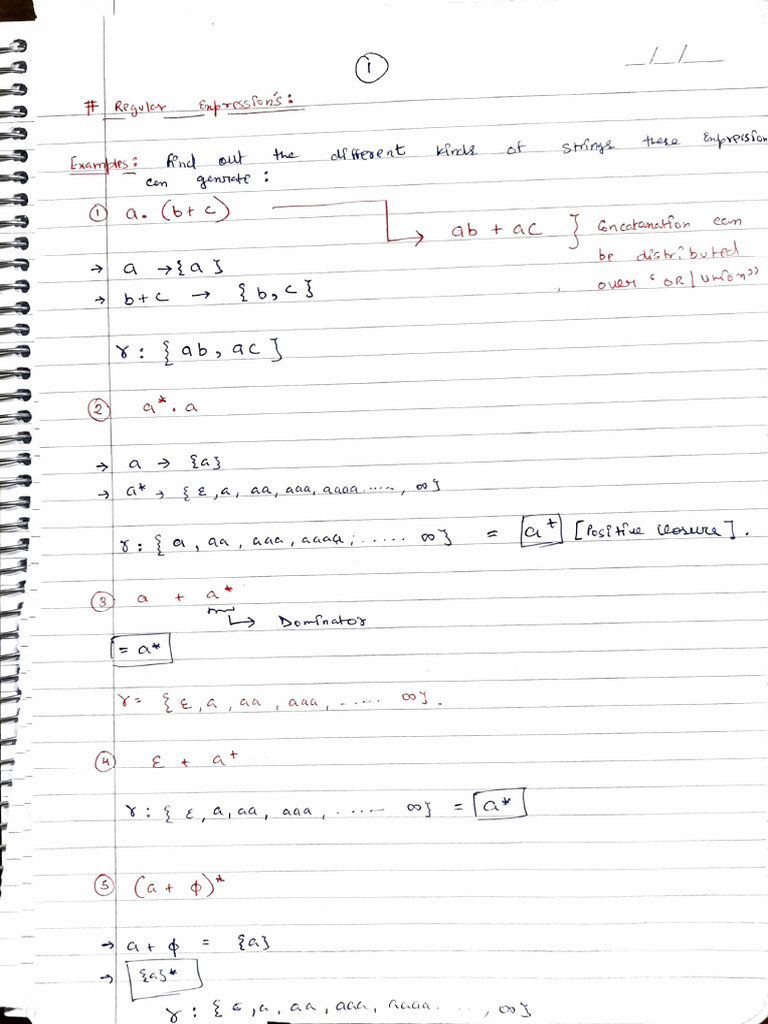 1
_/_/_
# Regular Expression's:
Examples: Find out the different kinds of strings these Expression
can genrate:
① a. (b+c) → ab + ac } Concatanation can
be distributed
over "OR/Union"
→ a → {a}
→ b+c → {b,c}
r: {ab, ac}
② a*. a
→ a → {a}
→ a* → {ε, a, aa, aaa, aaaa ....., ∞}
r: {a, aa, aaa, aaaa, ..... ∞} = a⁺ [Positive closure].
③ a + a*
↳ Dominator
= a*
r= {ε, a, aa, aaa, ..... ∞}.
④ ε + a⁺
r: {ε, a, aa, aaa, ..... ∞} = a*
⑤ (a + ϕ)*
→ a + ϕ = {a}
→ {a}*
r: {ε, a, aa, aaa, aaaa. ..., ∞}